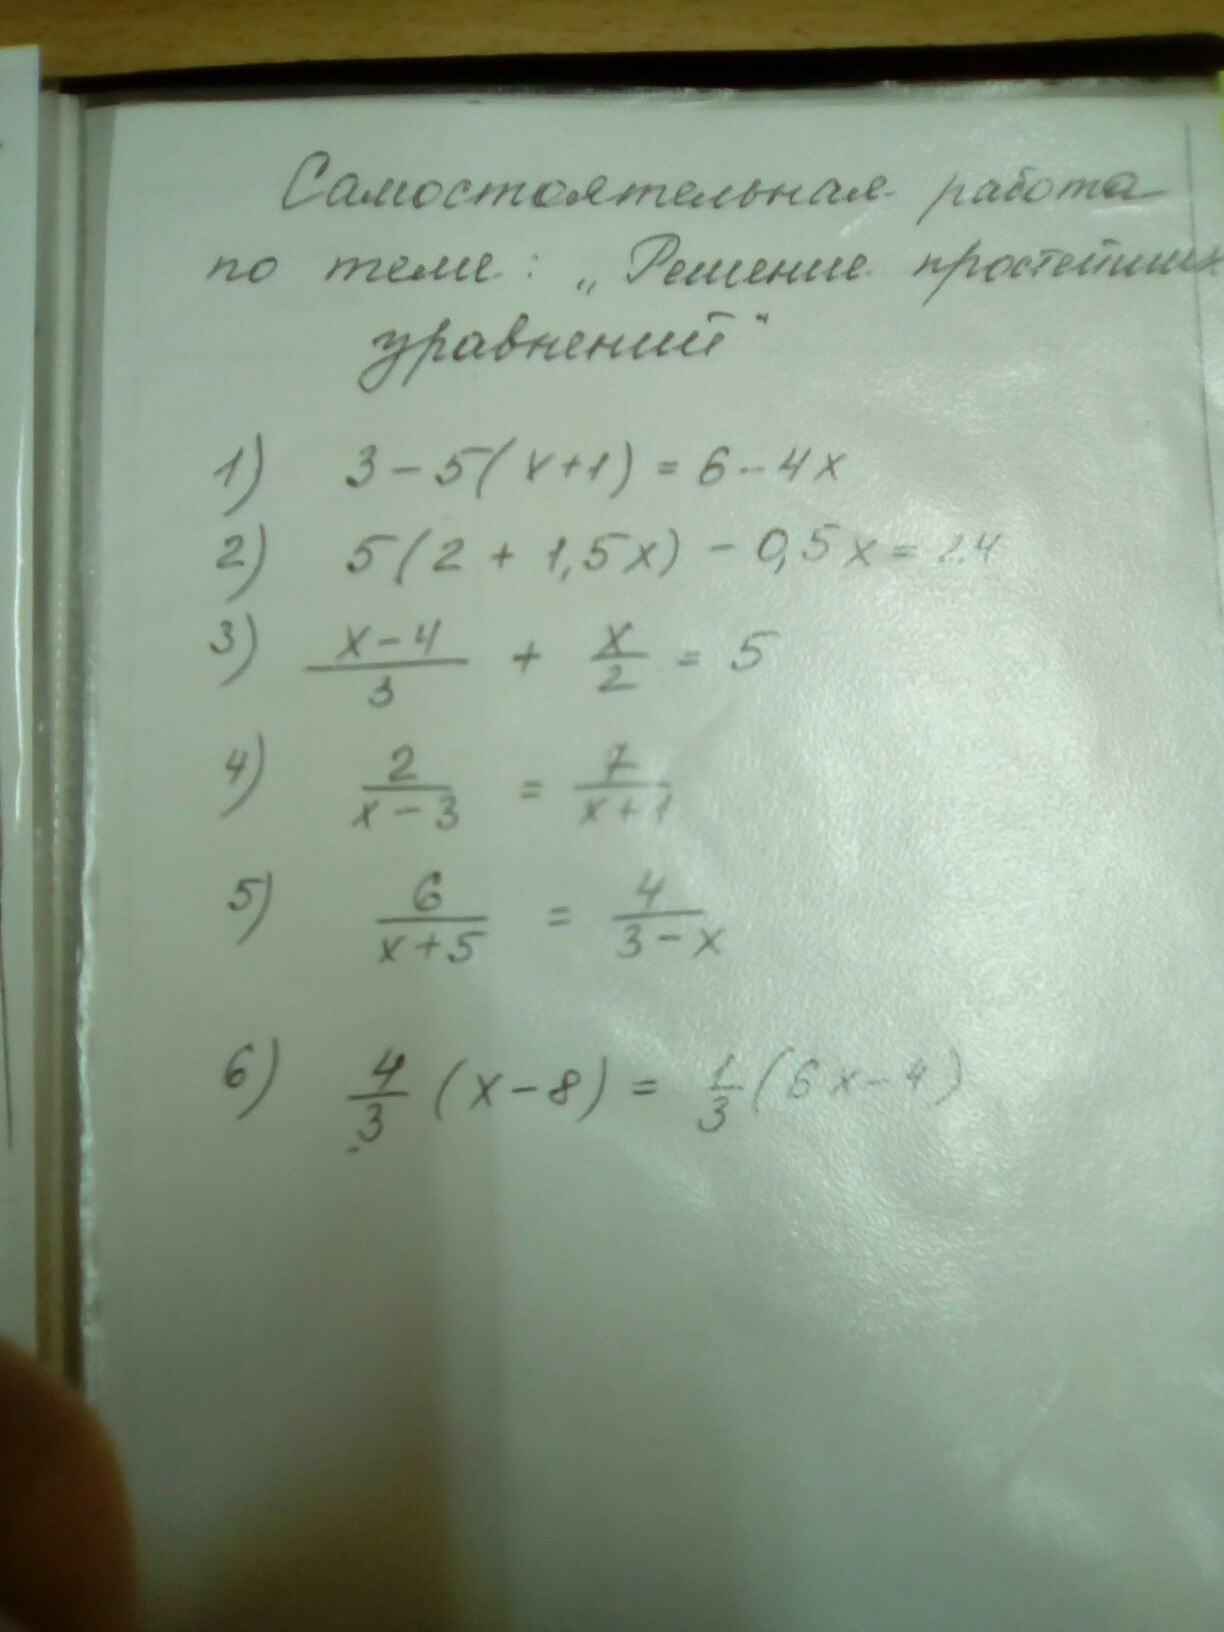 Самостоятельная работа
по теме: „Решение простейших
уравнений"
1) 3 – 5(x+1) = 6 – 4x
2) 5(2 + 1,5x) – 0,5x = 24
3) (x–4)/3 + x/2 = 5
4) 2/(x–3) = 7/(x+1)
5) 6/(x+5) = 4/(3–x)
6) 4/3 (x–8) = 1/3 (6x–4)